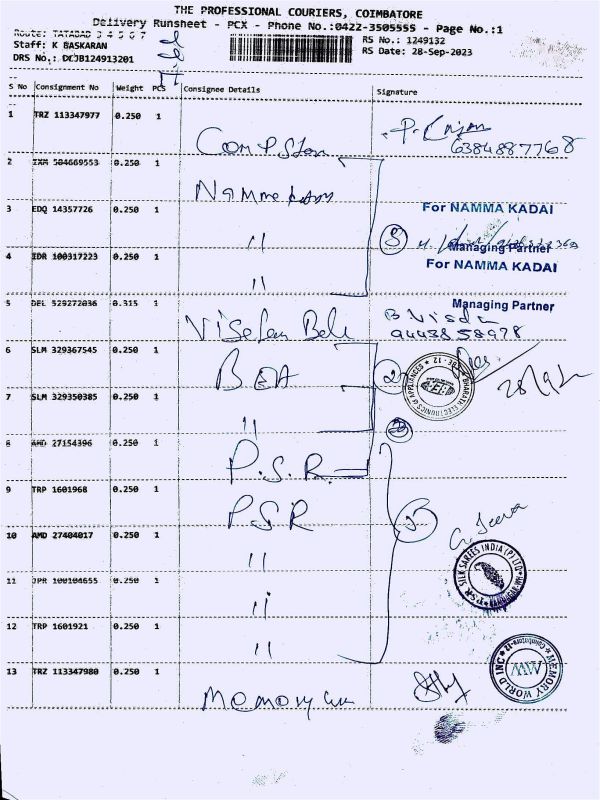 THE PROFESSIONAL COURIERS, COIMBATORE
Delivery Runsheet - PCX - Phone No.:0422-3505555 - Page No.:1
Route: TATABAD 3 4 5 6 7
RS No.: 1249132
Staff: K BASKARAN
RS Date: 28-Sep-2023
DRS No.: DCJB124913201
S No Consignment No Weight PCS Consignee Details Signature
1 TRZ 113347977 0.250 1
6384887768
2 IXM 504669553 0.250 1
For NAMMA KADAI
3 EDQ 14357726 0.250 1 "
Managing Partner
For NAMMA KADAI
4 IDR 100317223 0.250 1 "
Managing Partner
5 DEL 529272036 0.315 1
9443858978
6 SLM 329367545 0.250 1
BHARATH ELECTRONICS & APPLIANCES CBE-12
7 SLM 329350385 0.250 1 "
8 AMD 27154396 0.250 1 P.S.R.
9 TRP 1601968 0.250 1 PSR
G. Jeeva
10 AMD 27404017 0.250 1 "
PSR SILK SAREES INDIA (P) LTD
11 JPR 100104655 0.250 1 "
12 TRP 1601921 0.250 1 "
MEMORY WORLD INC Coimbatore-12
MW
13 TRZ 113347980 0.250 1 Memory